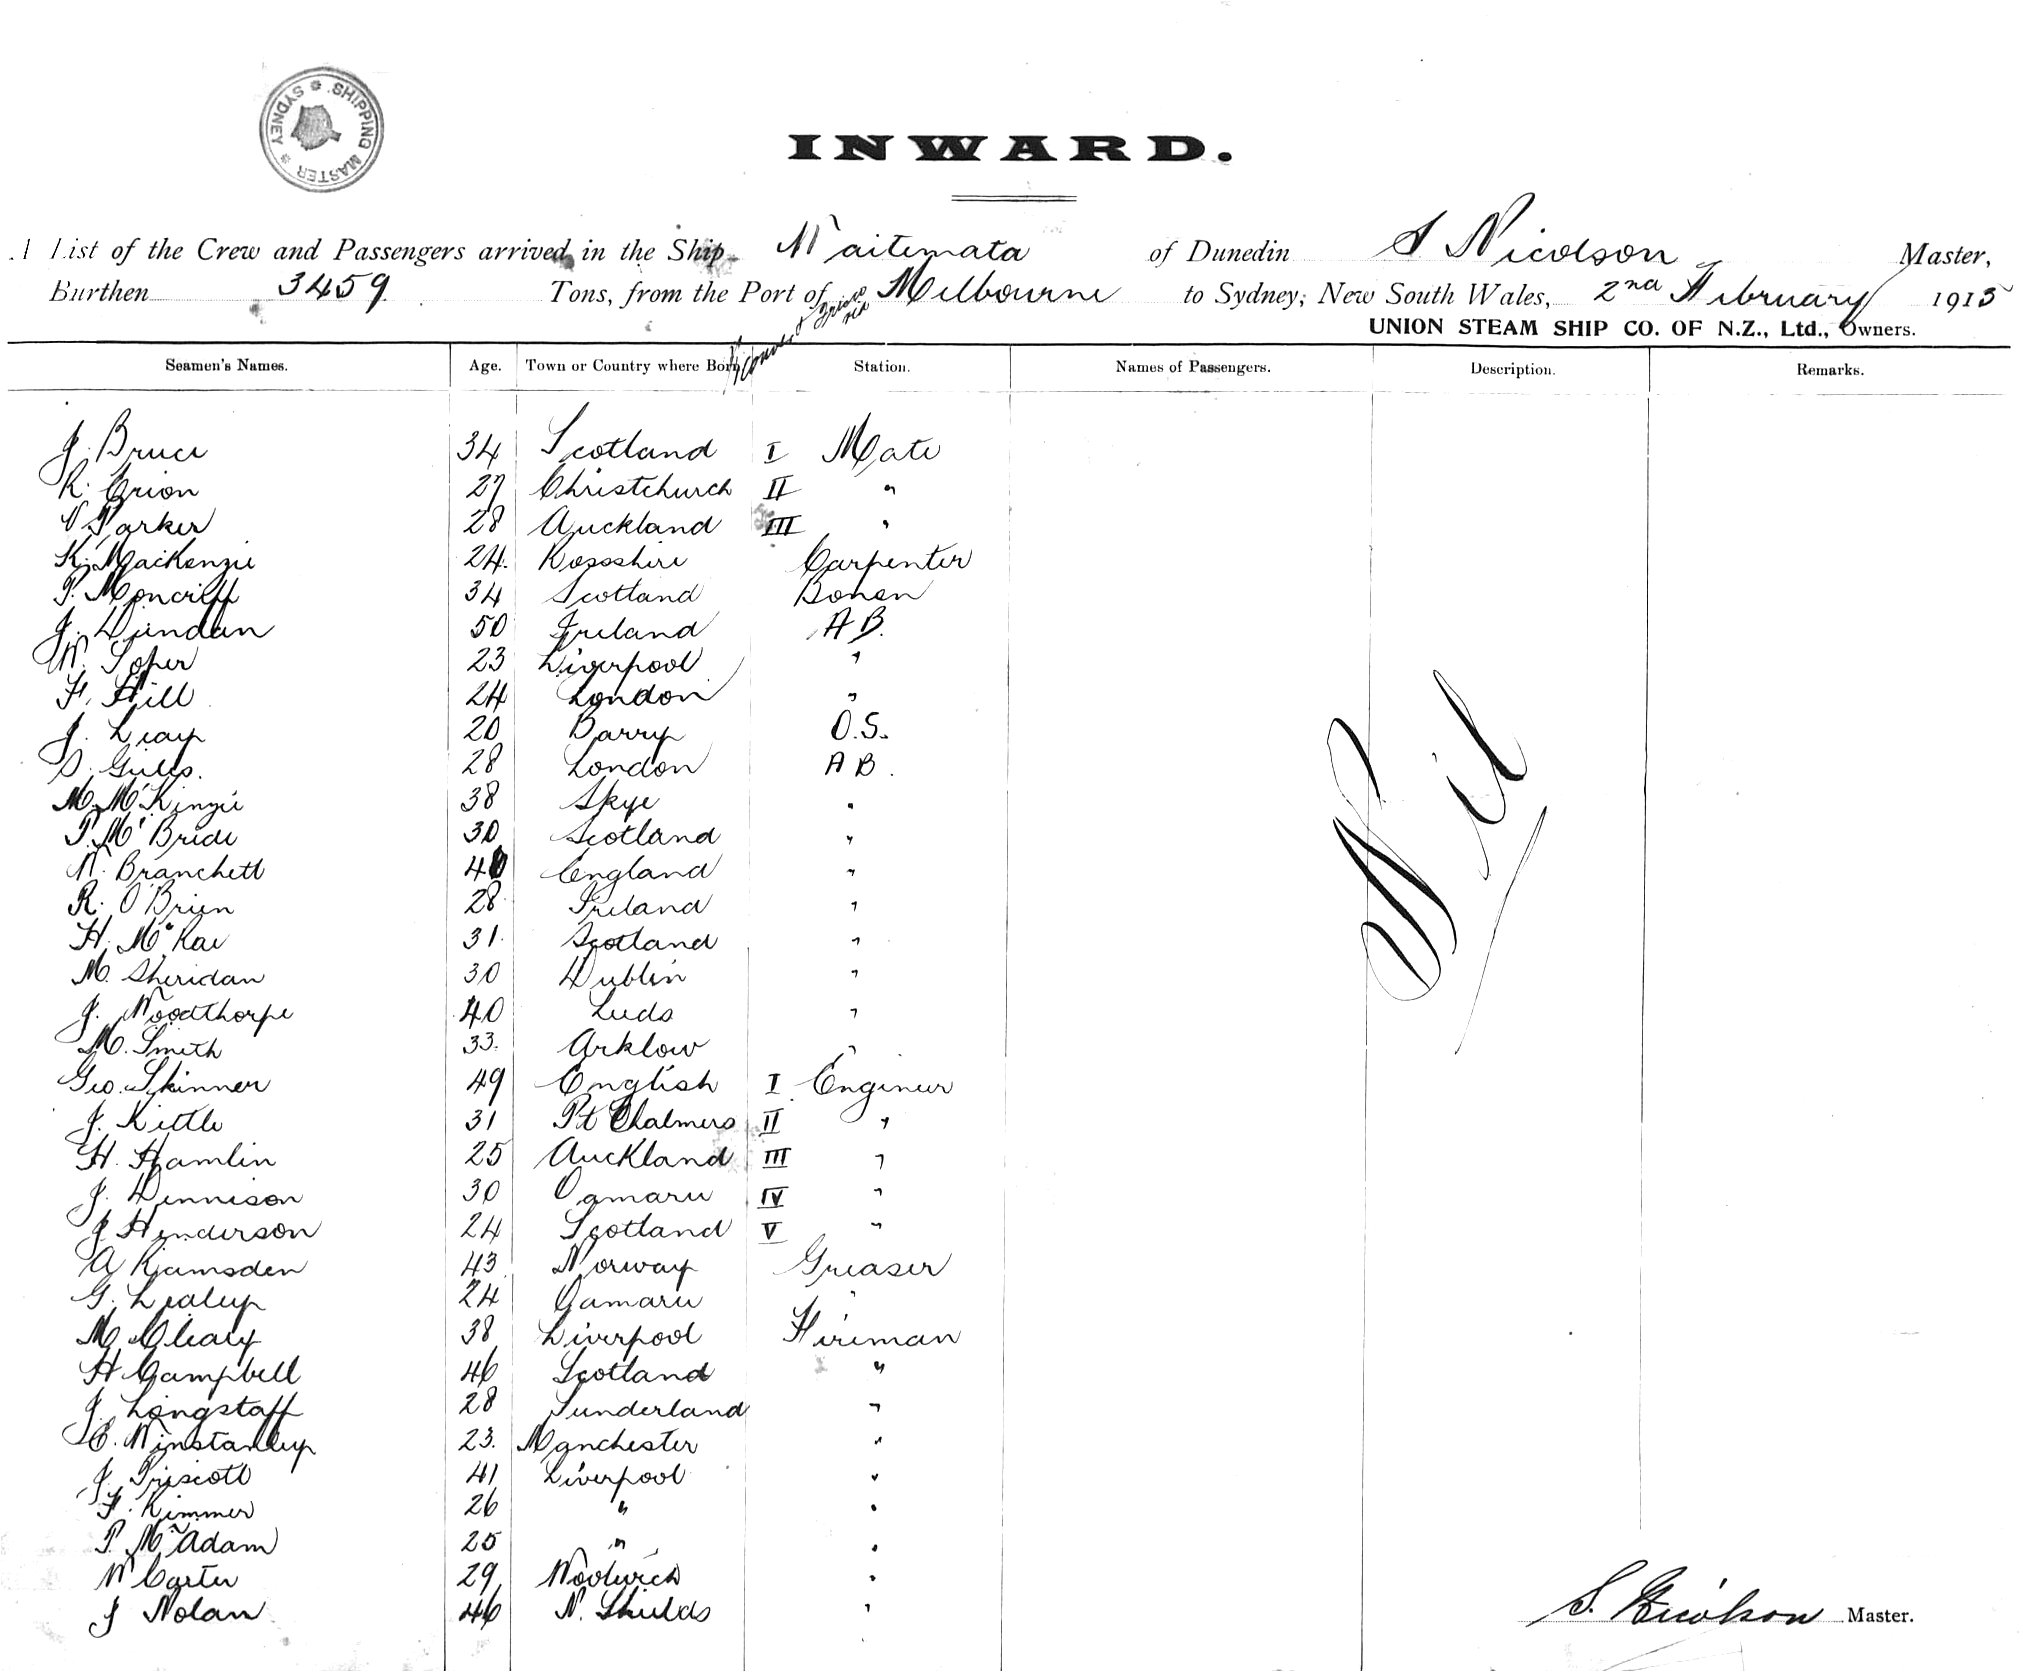 SHIPPING MASTER * SYDNEY *
INWARD.
A List of the Crew and Passengers arrived in the Ship Waitemata of Dunedin S Nicolson Master,
Burthen 3459 Tons, from the Port of Melbourne to Sydney, New South Wales, 2nd February 1915
UNION STEAM SHIP CO. OF N.Z., Ltd., Owners.
Seamen's Names. Age. Town or Country where Born Station. Names of Passengers. Description. Remarks.
J. Bruce 34 Scotland I Mate
R. Crion 27 Christchurch II "
Parker 28 Auckland III "
K. MacKenzie 24 Rossshire Carpenter
P. Moncriff 34 Scotland Bosen
J. Dundan 50 Ireland A B.
W. Soper 23 Liverpool "
F. Hill 24 London "
J. Leay 20 Barry O.S.
Giles. 28 London A B.
M. McKinzie 38 Skye "
P. McBride 30 Scotland "
W. Branchett 40 England "
R. O'Brien 28 Ireland "
H. McKae 31 Scotland "
M. Sheridan 30 Dublin "
J. Woodthorpe 40 Leeds "
M. Smith 33 Arklow "
Geo. Skinner 49 English I Engineer
J. Kittle 31 Pt Chalmers II "
H. Hamlin 25 Auckland III "
J. Dennison 30 Oamaru IV "
J Henderson 24 Scotland V "
A Ramsden 43 Norway Greaser
G. Lealey 24 Oamaru "
M Oleary 38 Liverpool Fireman
H Campbell 46 Scotland "
J. Longstaff 28 Sunderland "
C. Winstanley 23. Manchester "
J. Priscott 41 Liverpool "
F. Rimmer 26 " "
P. McAdam 25 " "
W Carter 29 Woolwich "
J Nolan 46 N. Shields "
Nil
S. Nicolson Master.